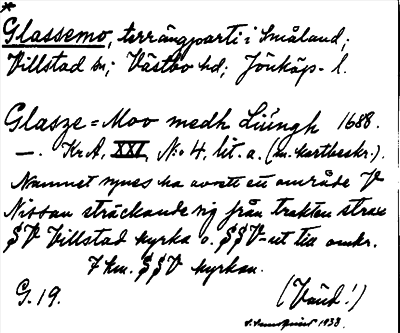 *
Glassemo, terrängparti i Småland;
Villstad sn; Västbo hd; Jönköp. l.
Glasze = Moo medh Liungh 1688.
—. Kr.A, XXI, No 4, lit. a. (m. kartbeskr.).
Namnet synes ha avsett ett område V
Nissan sträckande sig från trakten strax
SV Villstad kyrka o. SSV-ut till omkr.
7 km. SSV kyrkan.
G. 19.
(Vänd!)
1938